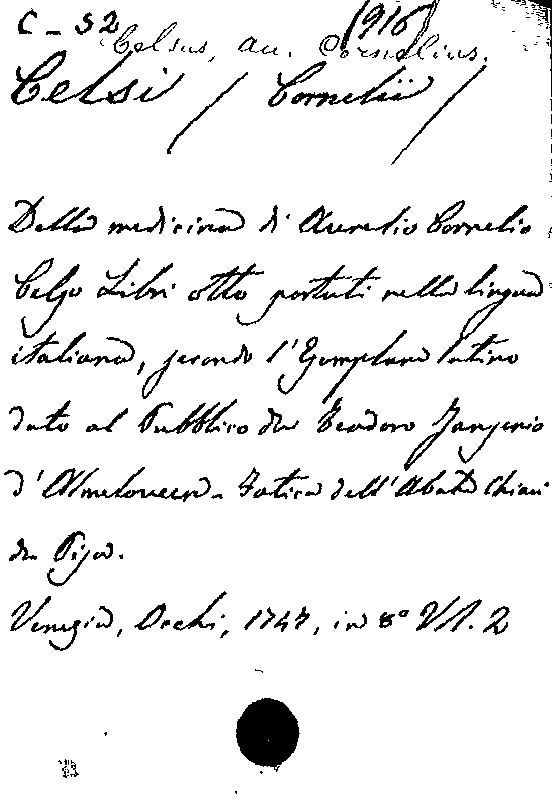 C - 52 1916
Celsus, Au. Cornelius.
Celsi / Cornelii /
Della medicina di Aurelio Cornelio
Celso Libri otto portati nella lingua
italiana, secondo l'Esemplare latino
dato al Pubblico da Teodoro Jansenio
d'Almeloveen - Fatica dell'Abate Chiari
da Pisa.
Venezia, Occhi, 1747, in 8° Vl. 2